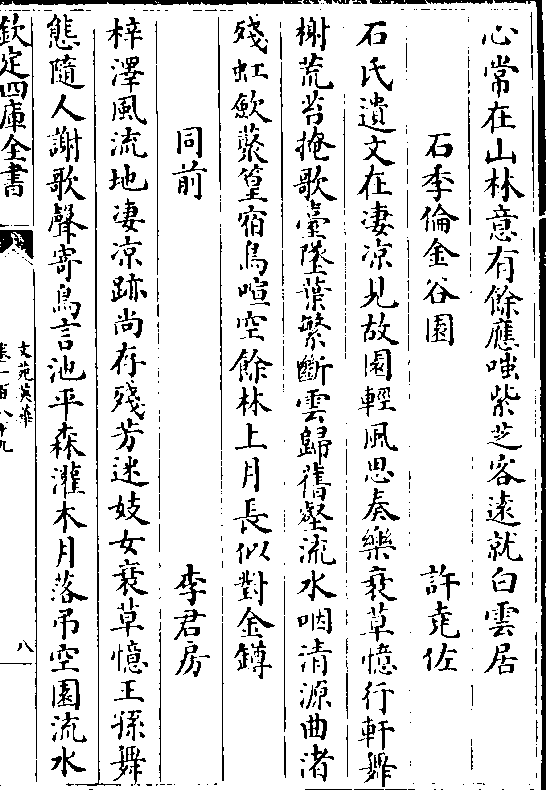 心常在山林意有餘應嗤紫芝客遠就白雲居
石季倫金谷園　許堯佐
石氏遺文在凄凉見故園輕風思奏樂衰草憶行軒舞
榭荒苔掩歌臺墜葉繁斷雲歸舊壑流水咽清源曲渚
殘虹歛叢篁宿鳥喧空餘林上月長似對金罇
同前　李君房
梓澤風流地凄凉跡尚存殘芳迷妓女衰草憶王孫舞
態隨人謝歌聲寄鳥言池平森灌木月落吊空園流水
欽定四庫全書
文苑英華
卷一百八十九
八